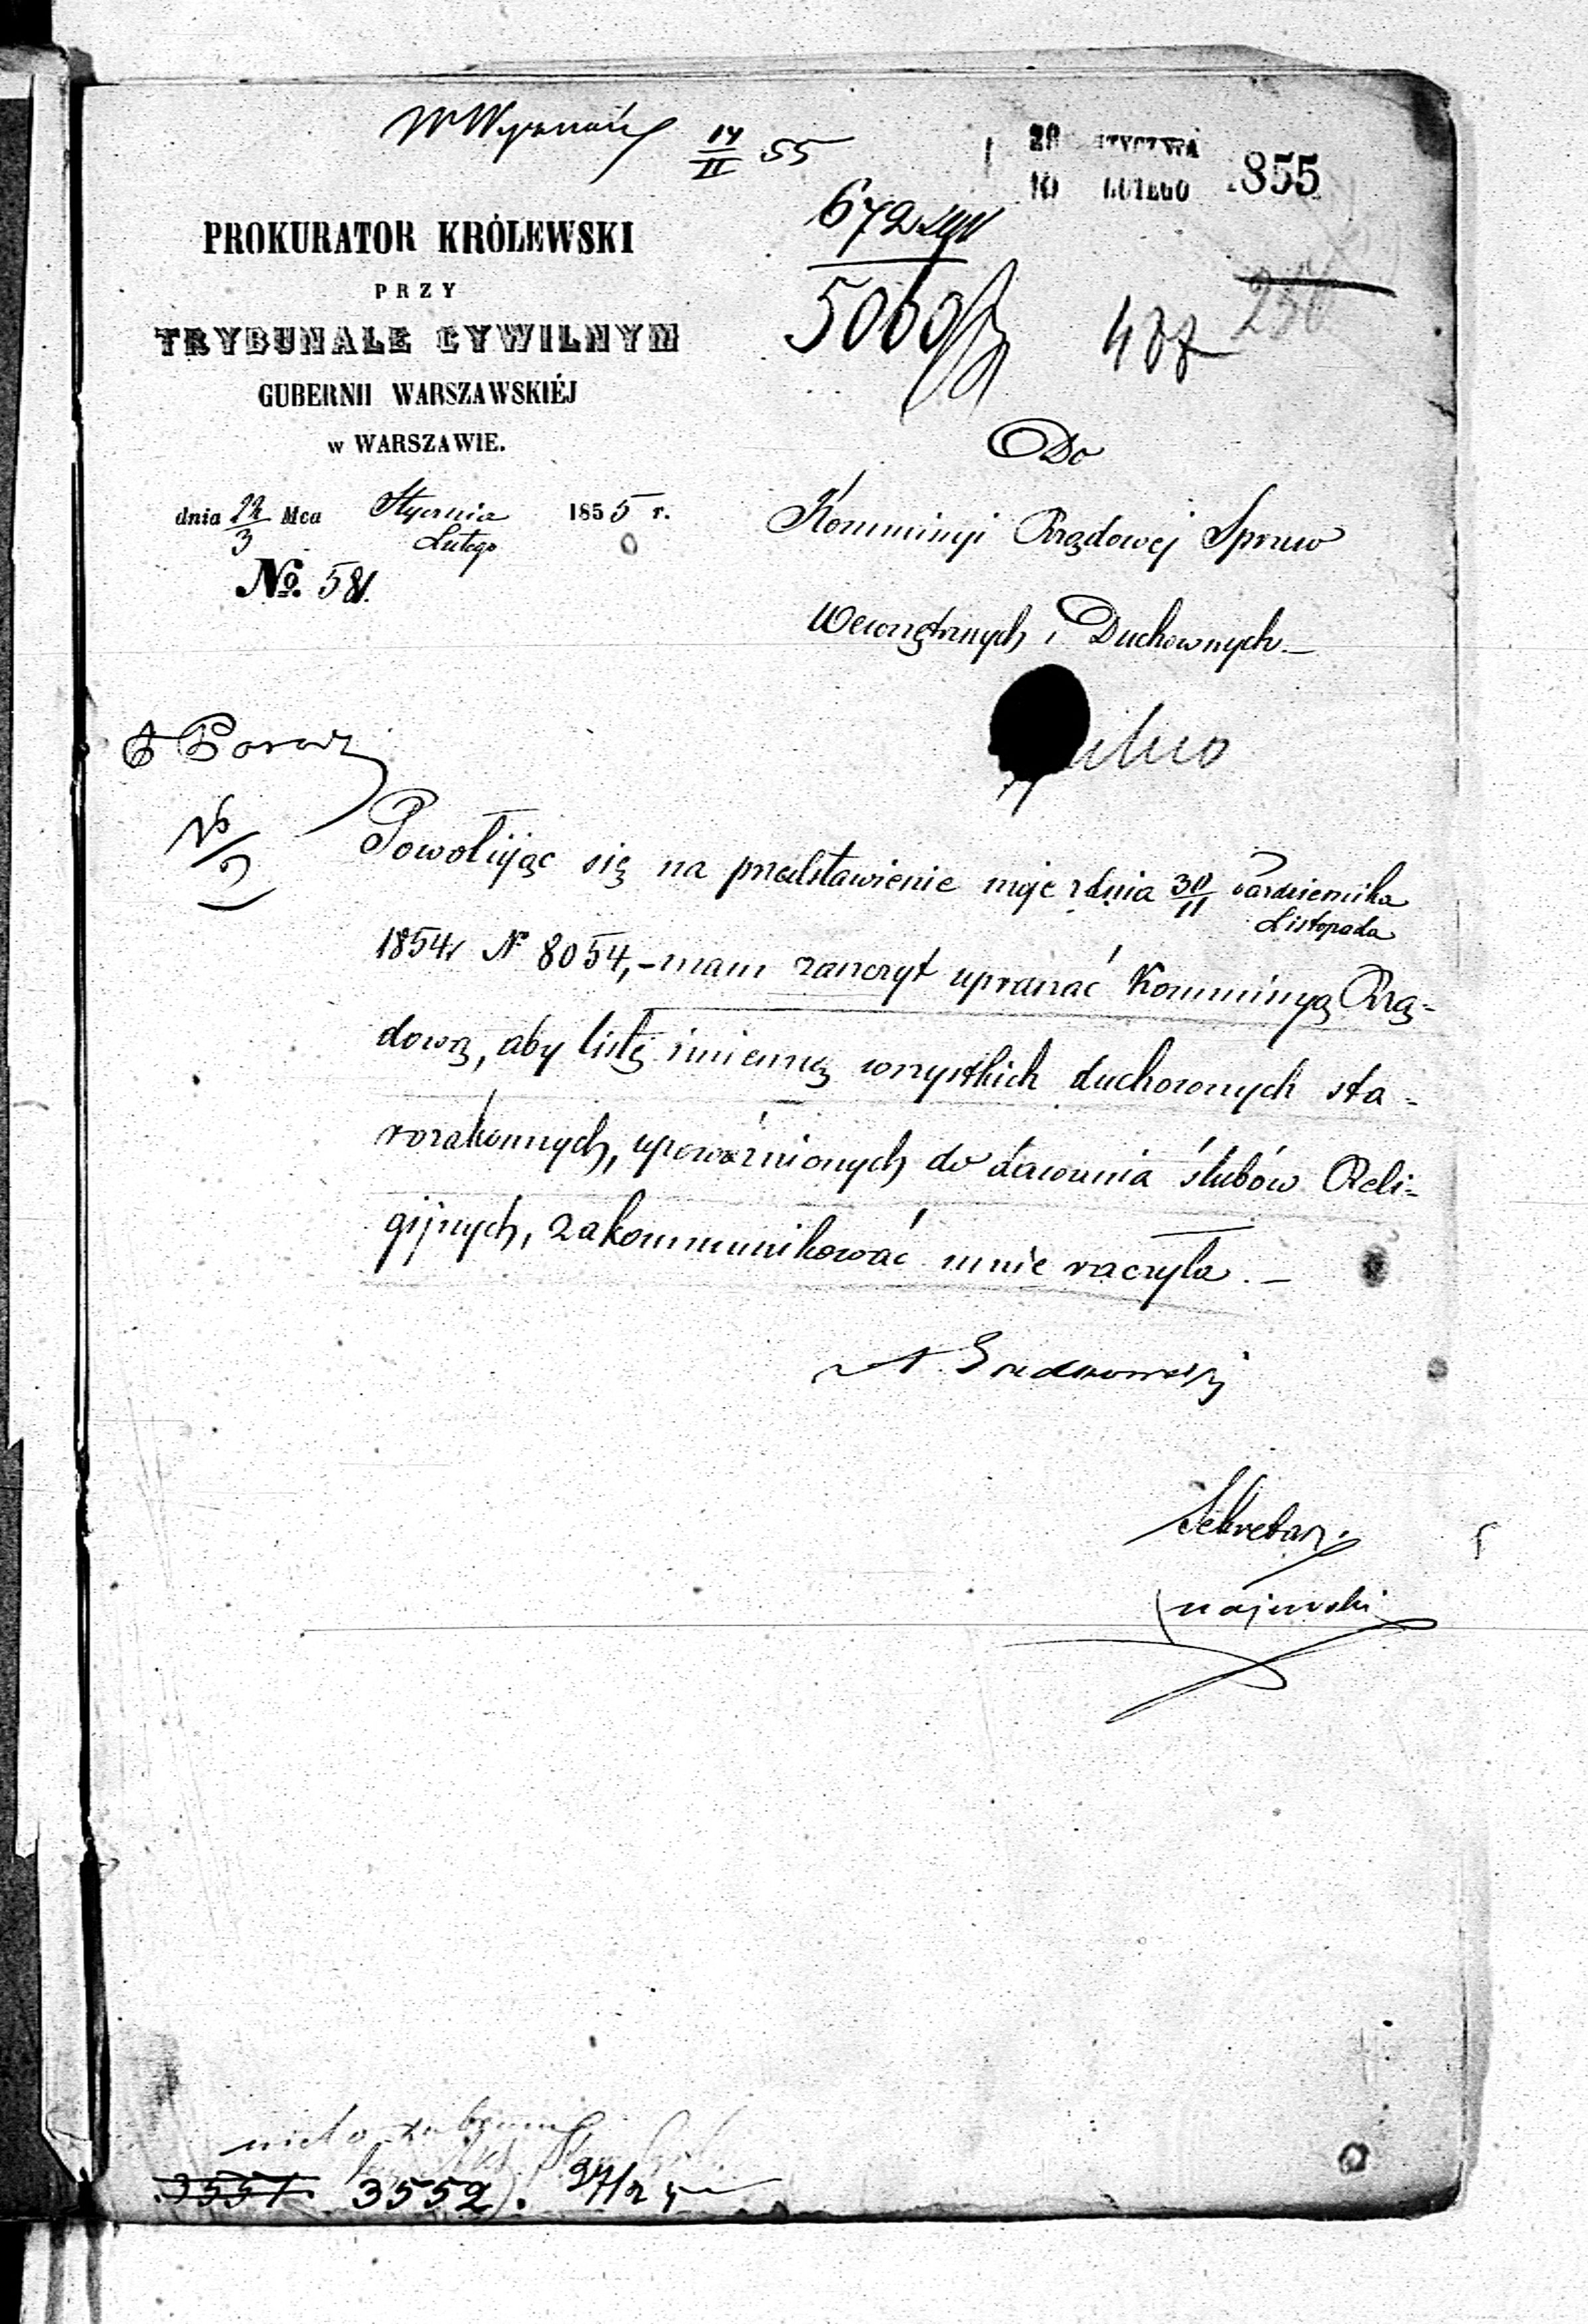 14/II 55
28 STYCZNIA
10 LUTEGO 1855
PROKURATOR KRÓLEWSKI
PRZY
TRYBUNALE CYWILNYM
GUBERNII WARSZAWSKIÉJ
w WARSZAWIE.
dnia 22/3 Mca Stycznia/Lutego 1855 r.
No. 581.
672
5060
487
Do
Kommissyi Rządowej Spraw
Wewnętrznych i Duchownych
Pilno
Powołując się na przedstawienie moje z dnia 30/11 Października/Listopada
1854r № 8054, – mam zaszczyt upraszać Kommissyą Rzą-
dową, aby listę imienną wszystkich duchownych sta-
rozakonnych, upoważnionych do dawania ślubów Reli-
gijnych, zakommunikować mnie raczyła. –
Sekretarz
3551 3552. 27/2